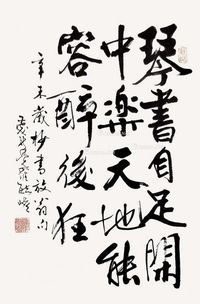 琴書自足閒
中樂天地能
容醉後狂
辛未歲杪書放翁句